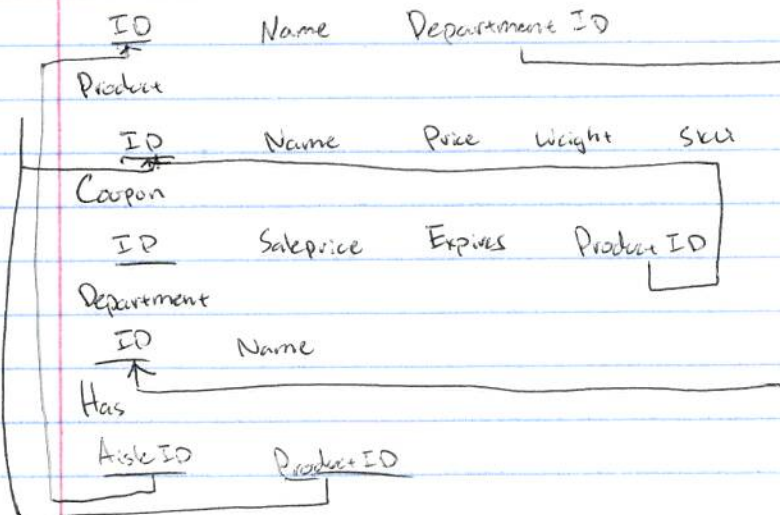 ID Name Department ID
Product
ID Name Price Weight SKU
Coupon
ID Saleprice Expires Product ID
Department
ID Name
Has
Aisle ID Product ID